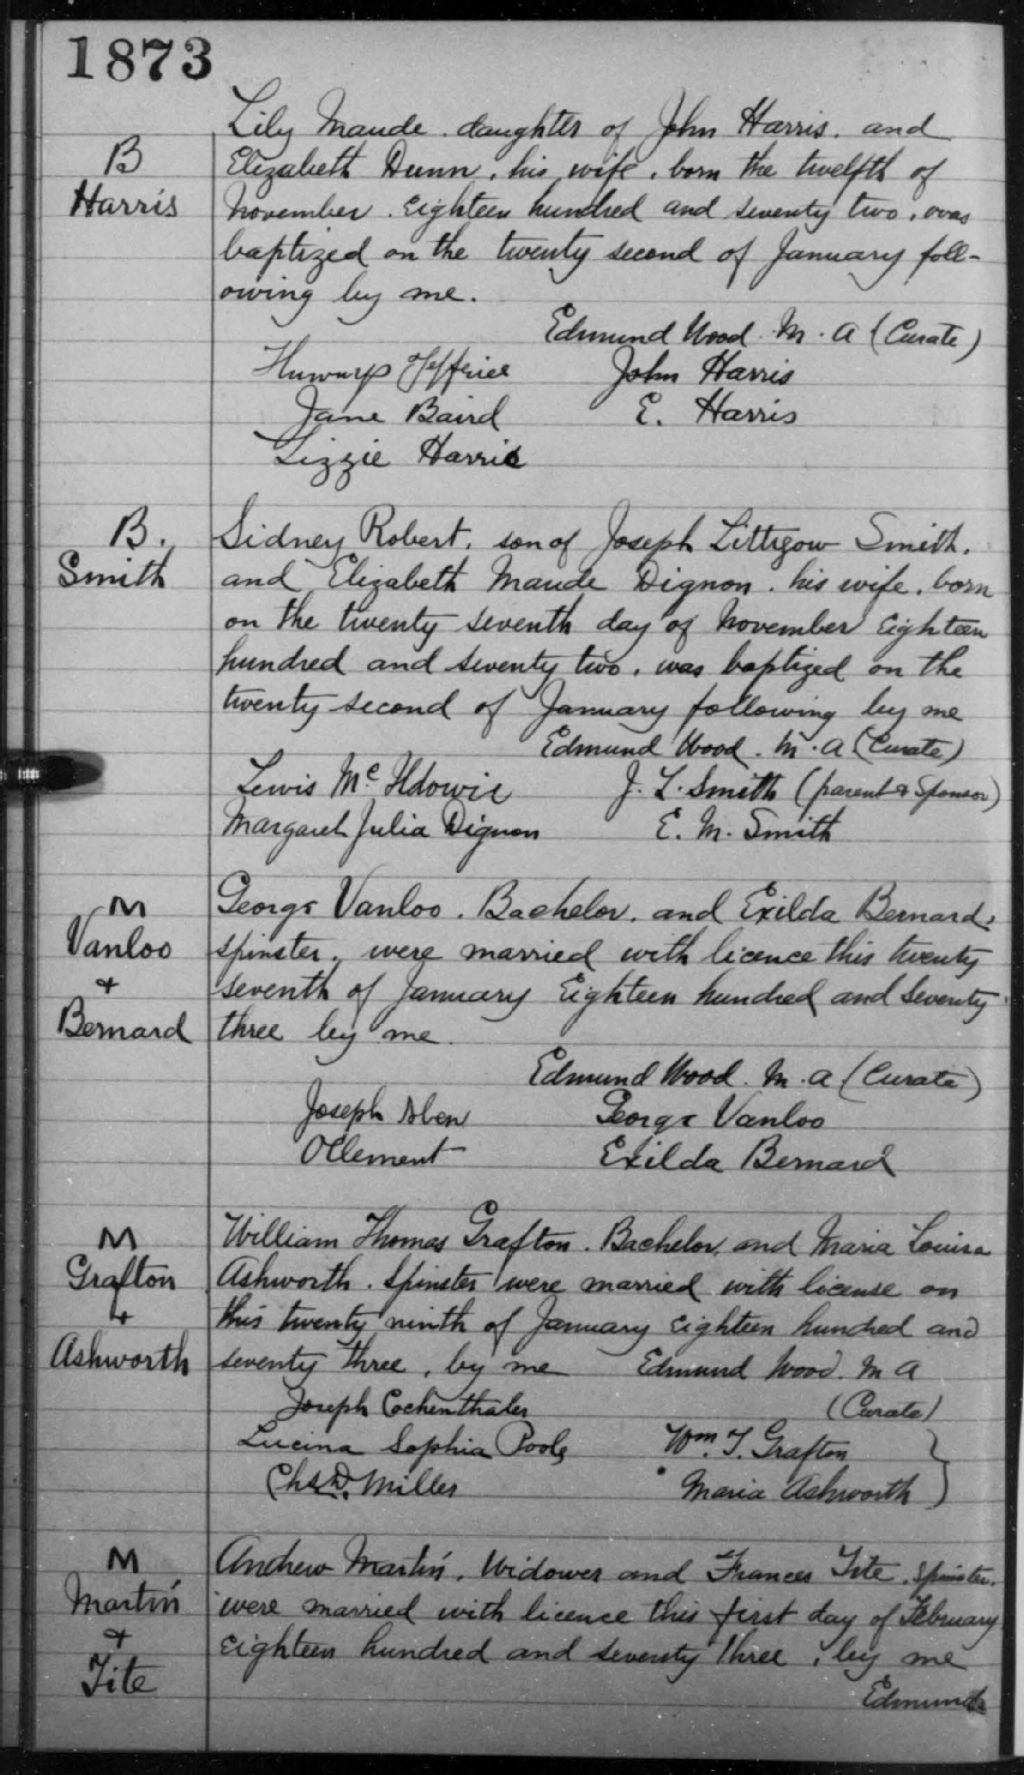 1873
B
Harris
Lily Maude. daughter of John Harris. and
Elizabeth Dunn. his wife. born the twelfth of
November. Eighteen hundred and seventy two. was
baptized on the twenty second of January foll-
owing by me.
Edmund Wood. M. A (Curate)
John Harris
Jane Baird E. Harris
Lizzie Harris
B.
Smith
Sidney Robert. son of Joseph Smith.
and Elizabeth Maude Dignon. his wife. born
on the twenty seventh day of November Eighteen
hundred and seventy two. was baptized on the
twenty second of January following by me
Edmund Wood. M. A (Curate)
Lewis J. L. Smith (parent & Sponsor)
Margaret Julia Dignon E. M. Smith
M
Vanloo
+
Bernard
George Vanloo. Bachelor. and Exilda Bernard.
spinster. were married with licence this twenty
seventh of January Eighteen hundred and seventy
three by me.
Edmund Wood. M. A (Curate)
Joseph George Vanloo
Exilda Bernard
M
Grafton
+
Ashworth
William Thomas Grafton. Bachelor and Maria Louisa
Ashworth. Spinster were married with license on
this twenty ninth of January Eighteen hundred and
seventy three. by me Edmund Wood. M A
Joseph Cochenthaler (Curate)
Lucina Sophia Poole Wm. T. Grafton
Miller Maria Ashworth
M
Martin
+
Tite
Andrew Martin. Widower and Frances Tite. Spinster.
were married with licence this first day of February
Eighteen hundred and seventy three. by me
Edmund